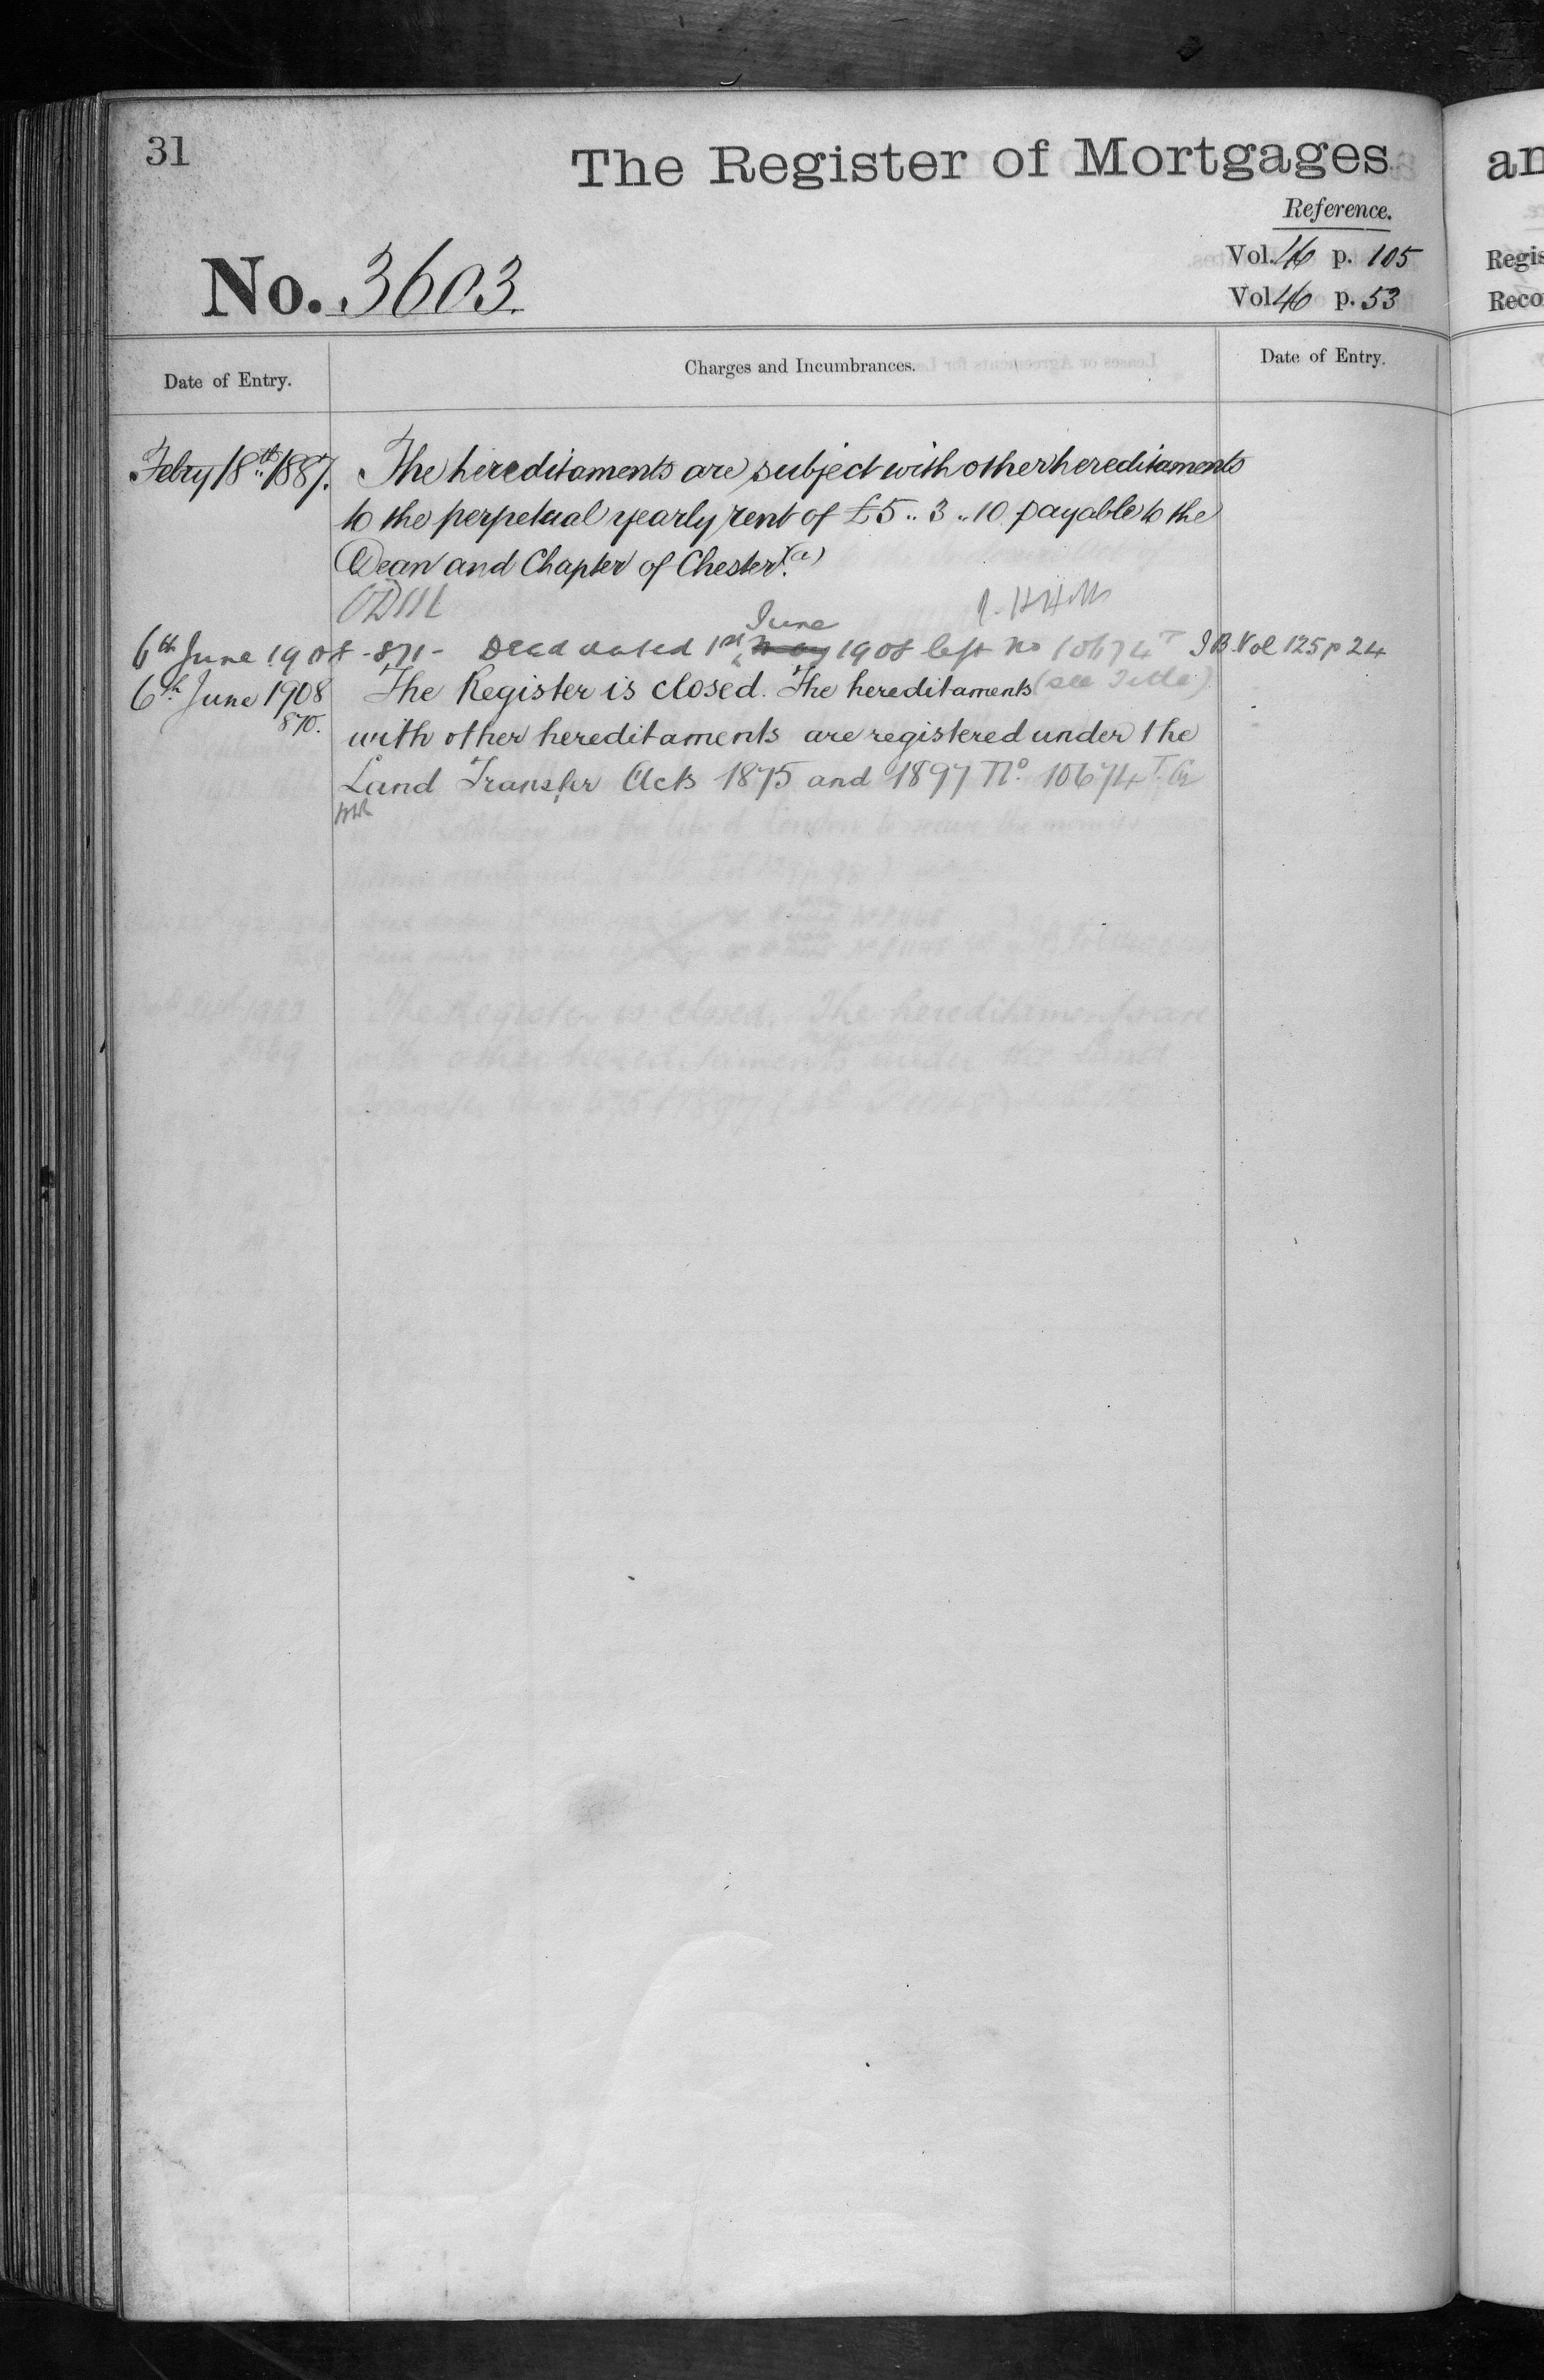 31
The Register of Mortgages
an
Reference.
No. 3603.
Vol. 46 p. 105
Vol 46 p. 53
Regis
Reco
Date of Entry.
Charges and Incumbrances.
Date of Entry.
Febry 18th 1887. The hereditaments are subject with other hereditaments
to the perpetual yearly rent of £5 .. 3 .. 10 payable to the
Dean and Chapter of Chester. (a)
June
6th June 1908 - 871 - Deed dated 1st May 1908 left No 10674 T I B. Vol 125 p 24
6th June 1908 The Register is closed. The hereditaments (see Title)
870.
with other hereditaments are registered under the
Land Transfer Acts 1875 and 1897 No. 10674 T.